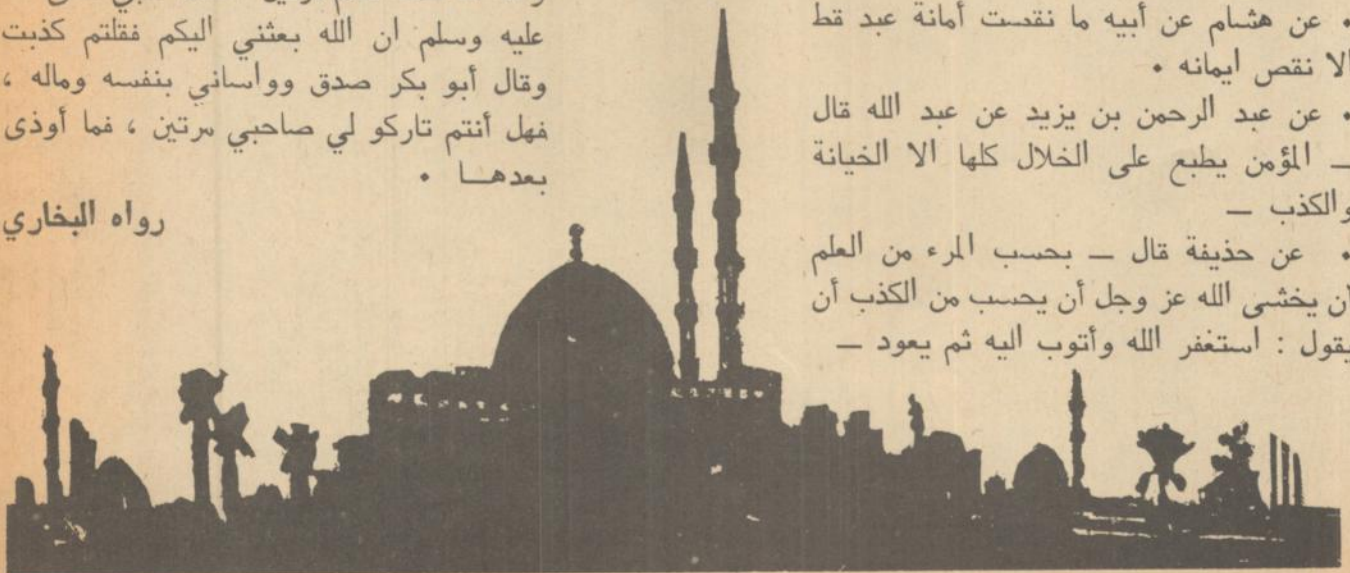 • عن هشام عن أبيه ما نقست أمانة عبد قط
الا نقص ايمانه •
• عن عبد الرحمن بن يزيد عن عبد الله قال
ــ المؤمن يطبع على الخلال كلها الا الخيانة
والكذب ــ
• عن حذيفة قال ــ بحسب المرء من العلم
أن يخشى الله عز وجل أن يحسب من الكذب أن
يقول : استغفر الله وأتوب اليه ثم يعود ــ
عليه وسلم ان الله بعثني اليكم فقلتم كذبت
وقال أبو بكر صدق وواساني بنفسه وماله ،
فهل أنتم تاركو لي صاحبي مرتين ، فما أوذى
بعدهــا •
رواه البخاري